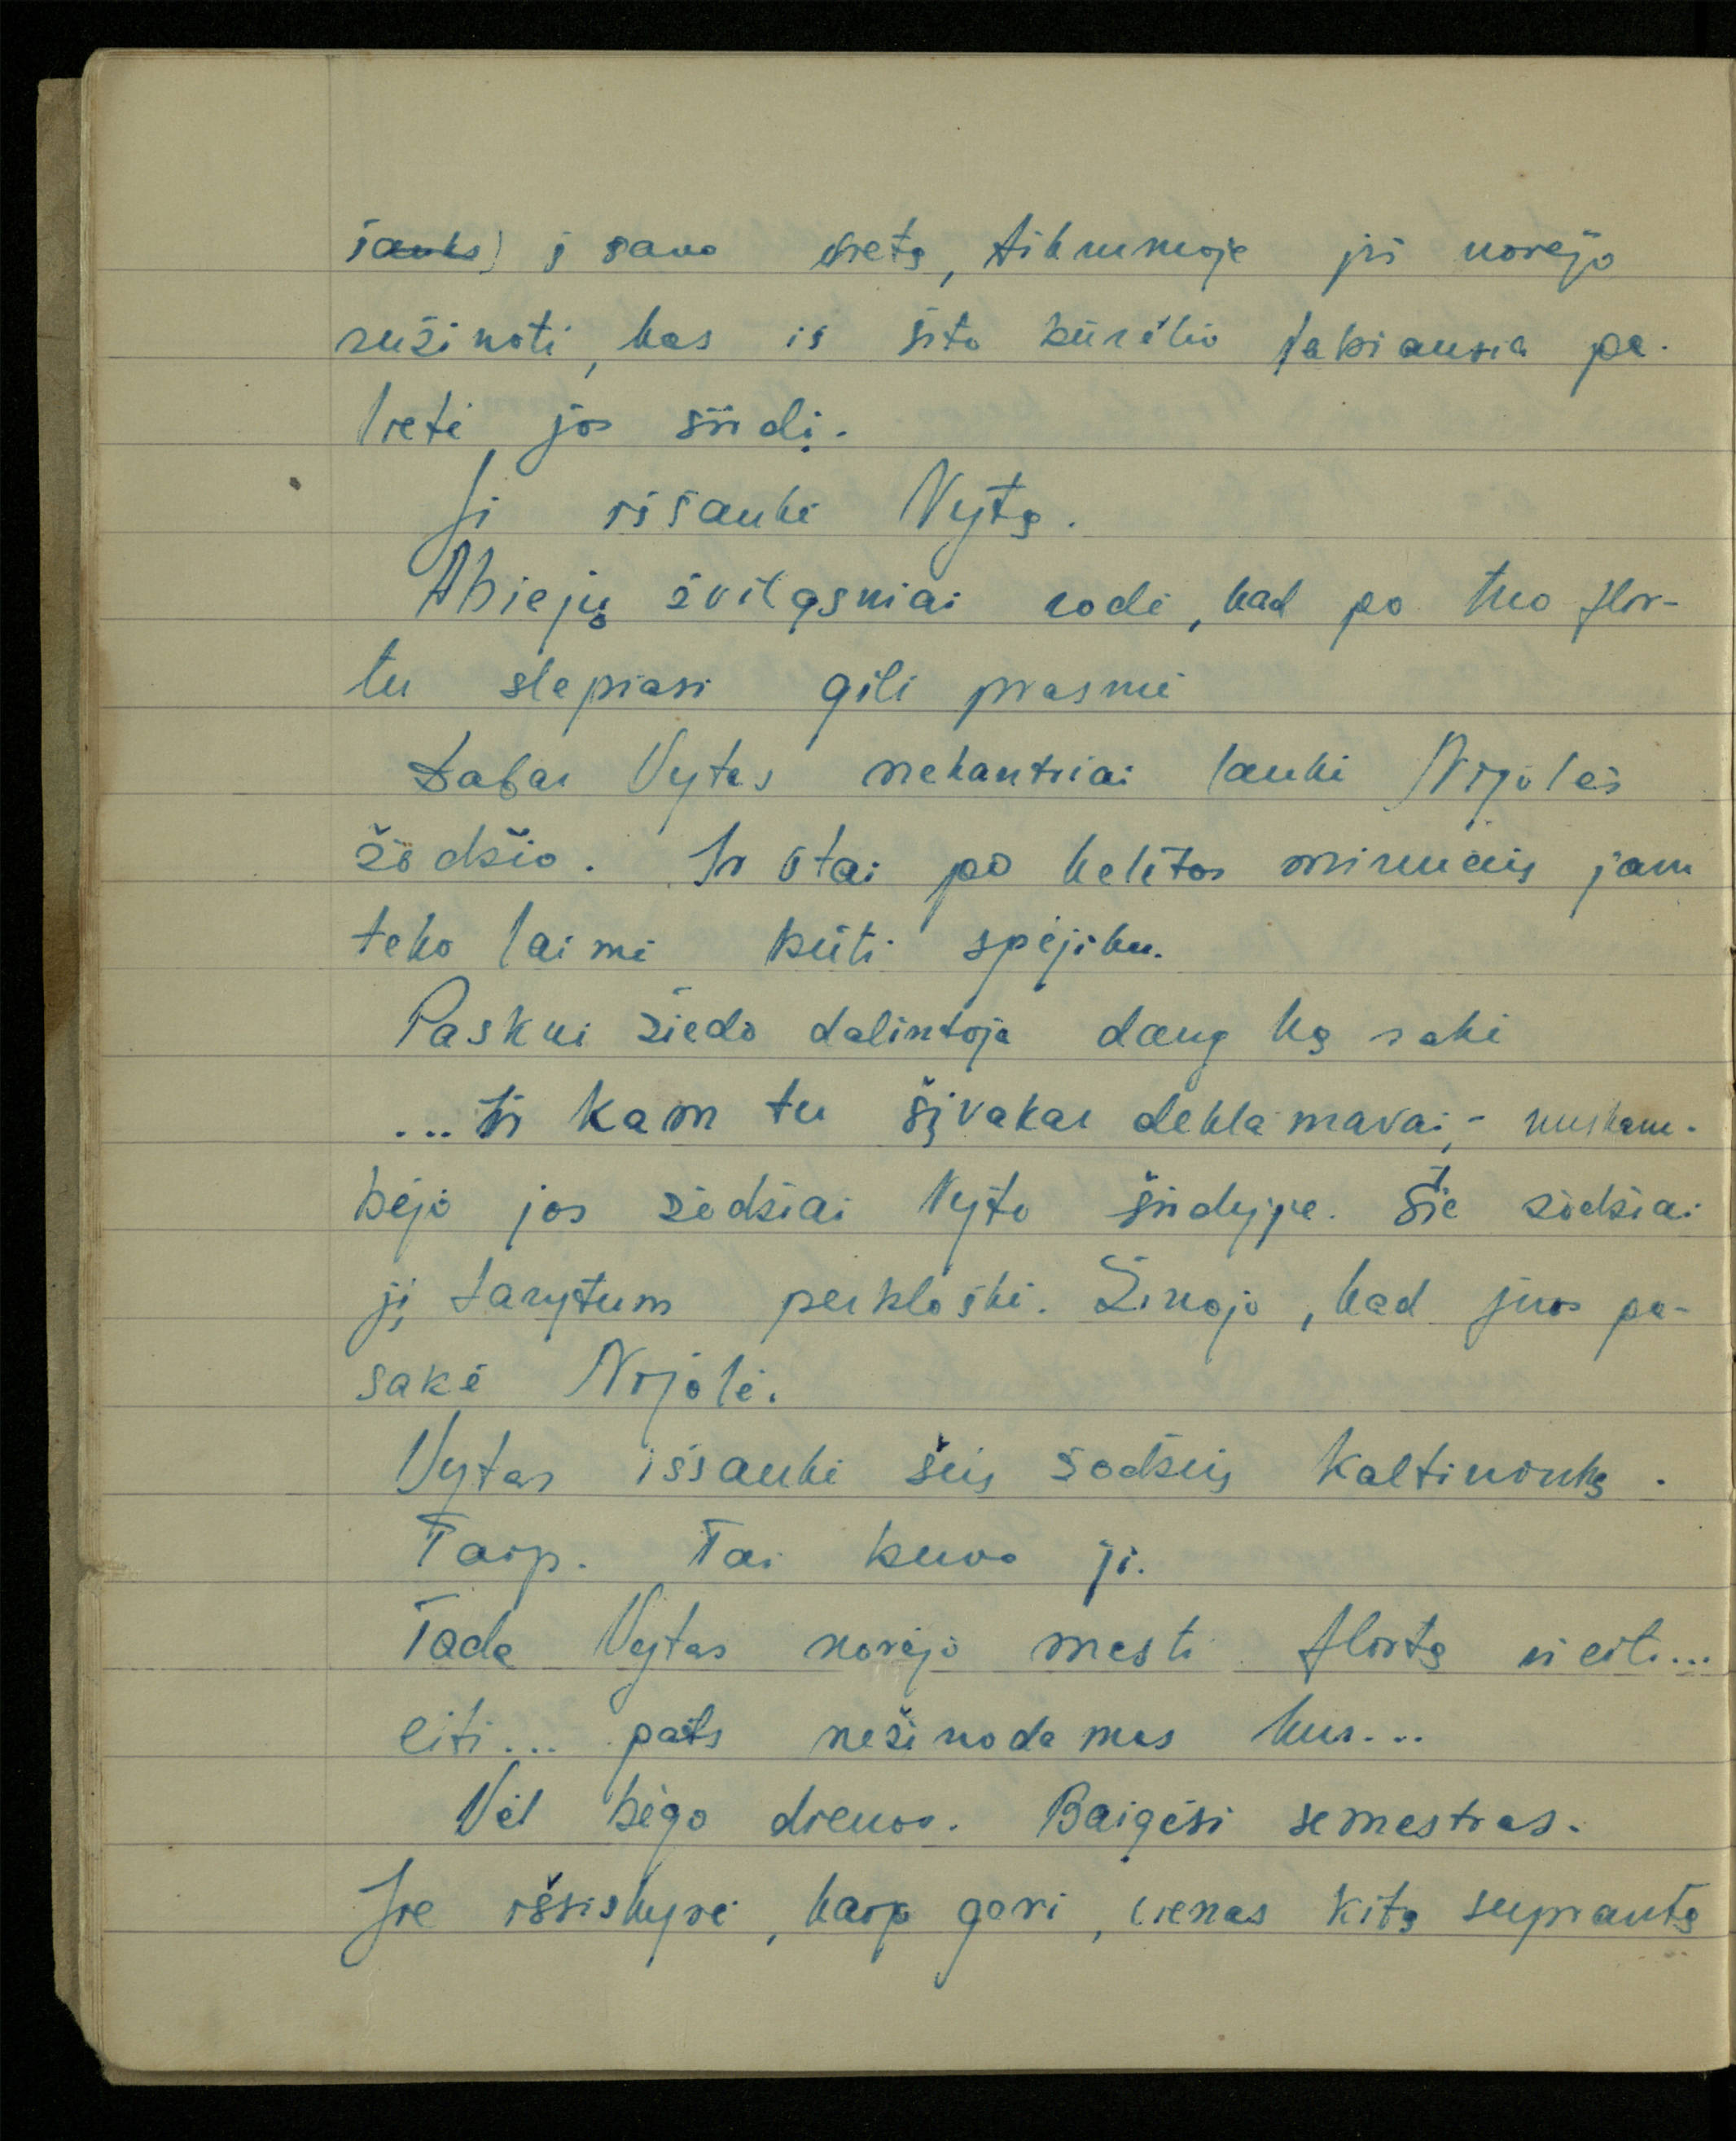 šauks) į savo vietą, tikrumoje jis norėjo
sužinoti, kas iš šito būrelio labiausia pa-
lietė jos širdį.
Ji iššaukė Vytą.
Abiejų žvilgsniai rodė, kad po tuo flir-
tu slepiasi gili prasmė
Dabar Vytas nekantriai laukė Nijolės
žodžio. Ir štai po keletos minučių jam
teko laimė būti spėjiku.
Paskui žiedo dalintoja daug ką sakė
... Ir kam tu šįvakar deklamavai, - nuskam-
bėjo jos žodžiai Vyto širdyje. Šie žodžiai
jį tarytum perbloškė. Žinojo, kad juos pa-
sakė Nijolė.
Vytas iššaukė šių žodžių kaltininką.
Taip. Tai buvo ji.
Tada Vytas norėjo mesti flirtą ir eiti...
eiti... pats nežinodamas kur...
Vėl bėgo dienos. Baigėsi semestras.
Jie išsiskyrė, kaip geri, vienas kitą suprantą